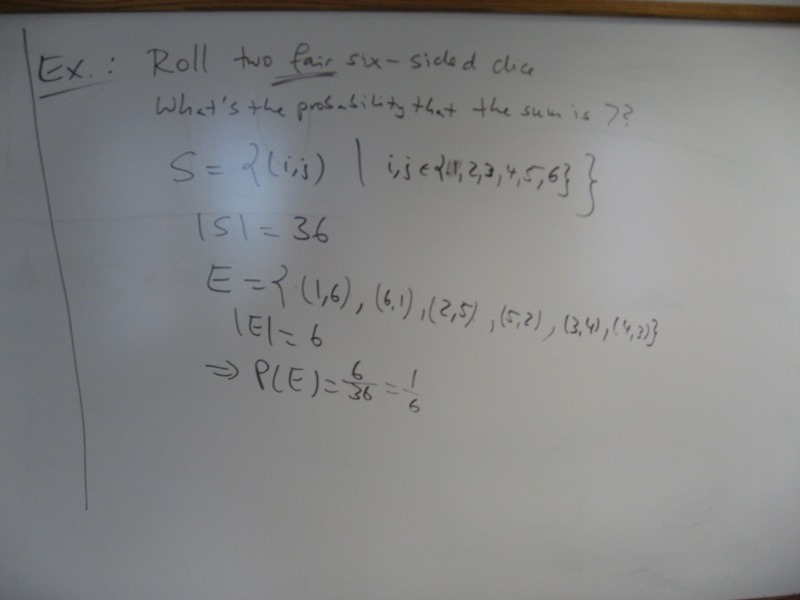 Ex.: Roll two fair six-sided dice
What's the probability that the sum is 7?
S = {(i,j) | i,j ∈ {1,2,3,4,5,6}}
|S| = 36
E = {(1,6), (6,1), (2,5), (5,2), (3,4), (4,3)}
|E| = 6
⇒ P(E) = 6/36 = 1/6